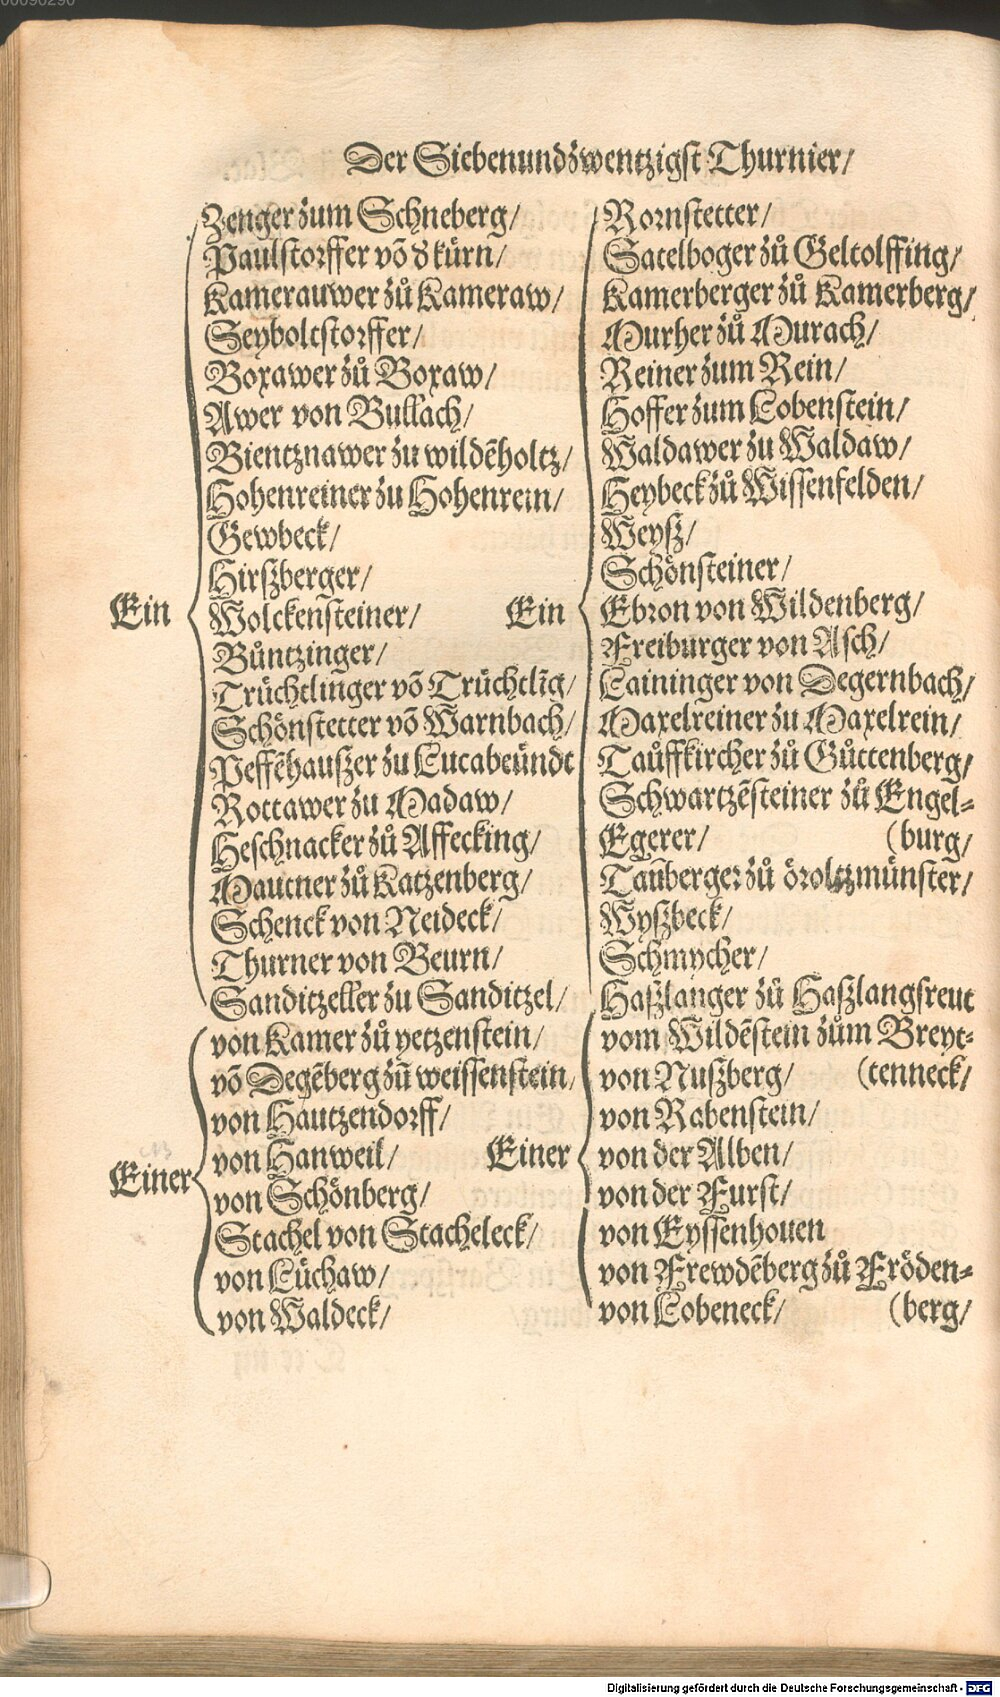 00090290
Der Siebenundzwentzigst Thurnier/
Zenger zum Schneberg/
Paulstorffer võ d kürn/
Kamerauwer zů Kameraw/
Seyboltstorffer/
Boxawer zů Boxaw/
Awer von Bullach/
Bientznawer zu wildēholtz/
Hohenreiner zu Hohenrein/
Gewbeck/
Hirßberger/
Ein
Wolckensteiner/
Bůntzinger/
Trüchtlinger võ Trüchtlīg/
Schönstetter võ Warnbach/
Peffēhaußer zu Lucabeündt
Rottawer zu Madaw/
Heschnacker zů Affecking/
Mautner zů Katzenberg/
Schenck von Neideck/
Thurner von Beurn/
Sanditzeller zu Sanditzel/
von Kamer zů yetzenstein/
võ Degēberg zů weissenstein/
von Hautzendorff/
von Hanweil/
Einer
von Schönberg/
Stachel von Stacheleck/
von Lüchaw/
von Waldeck/
Rornstetter/
Satelboger zů Geltolffing/
Kamerberger zů Kamerberg/
Murher zů Murach/
Reiner zum Rein/
Hoffer zum Lobenstein/
Waldawer zu Waldaw/
Heybeck zů Wissenfelden/
Weysz/
Schönsteiner/
Ein
Ebron von Wildenberg/
Freiburger von Asch/
Laininger von Degernbach/
Maxelreiner zu Maxelrein/
Taůffkircher zů Gůttenberg/
Schwartzēsteiner zů Engel=
Egerer/ (burg/
Tauberger zů öroltzmünster/
Wyßbeck/
Schmycher/
Haßlanger zů Haßlangsreut
vom Wildēstein zům Breyt=
von Nußberg/ (tenneck/
von Rabenstein/
Einer
von der Alben/
von der Furst/
von Eyssenhouen
von Frewdēberg zů Fröden=
von Lobeneck/ (berg/
Digitalisierung gefördert durch die Deutsche Forschungsgemeinschaft - DFG